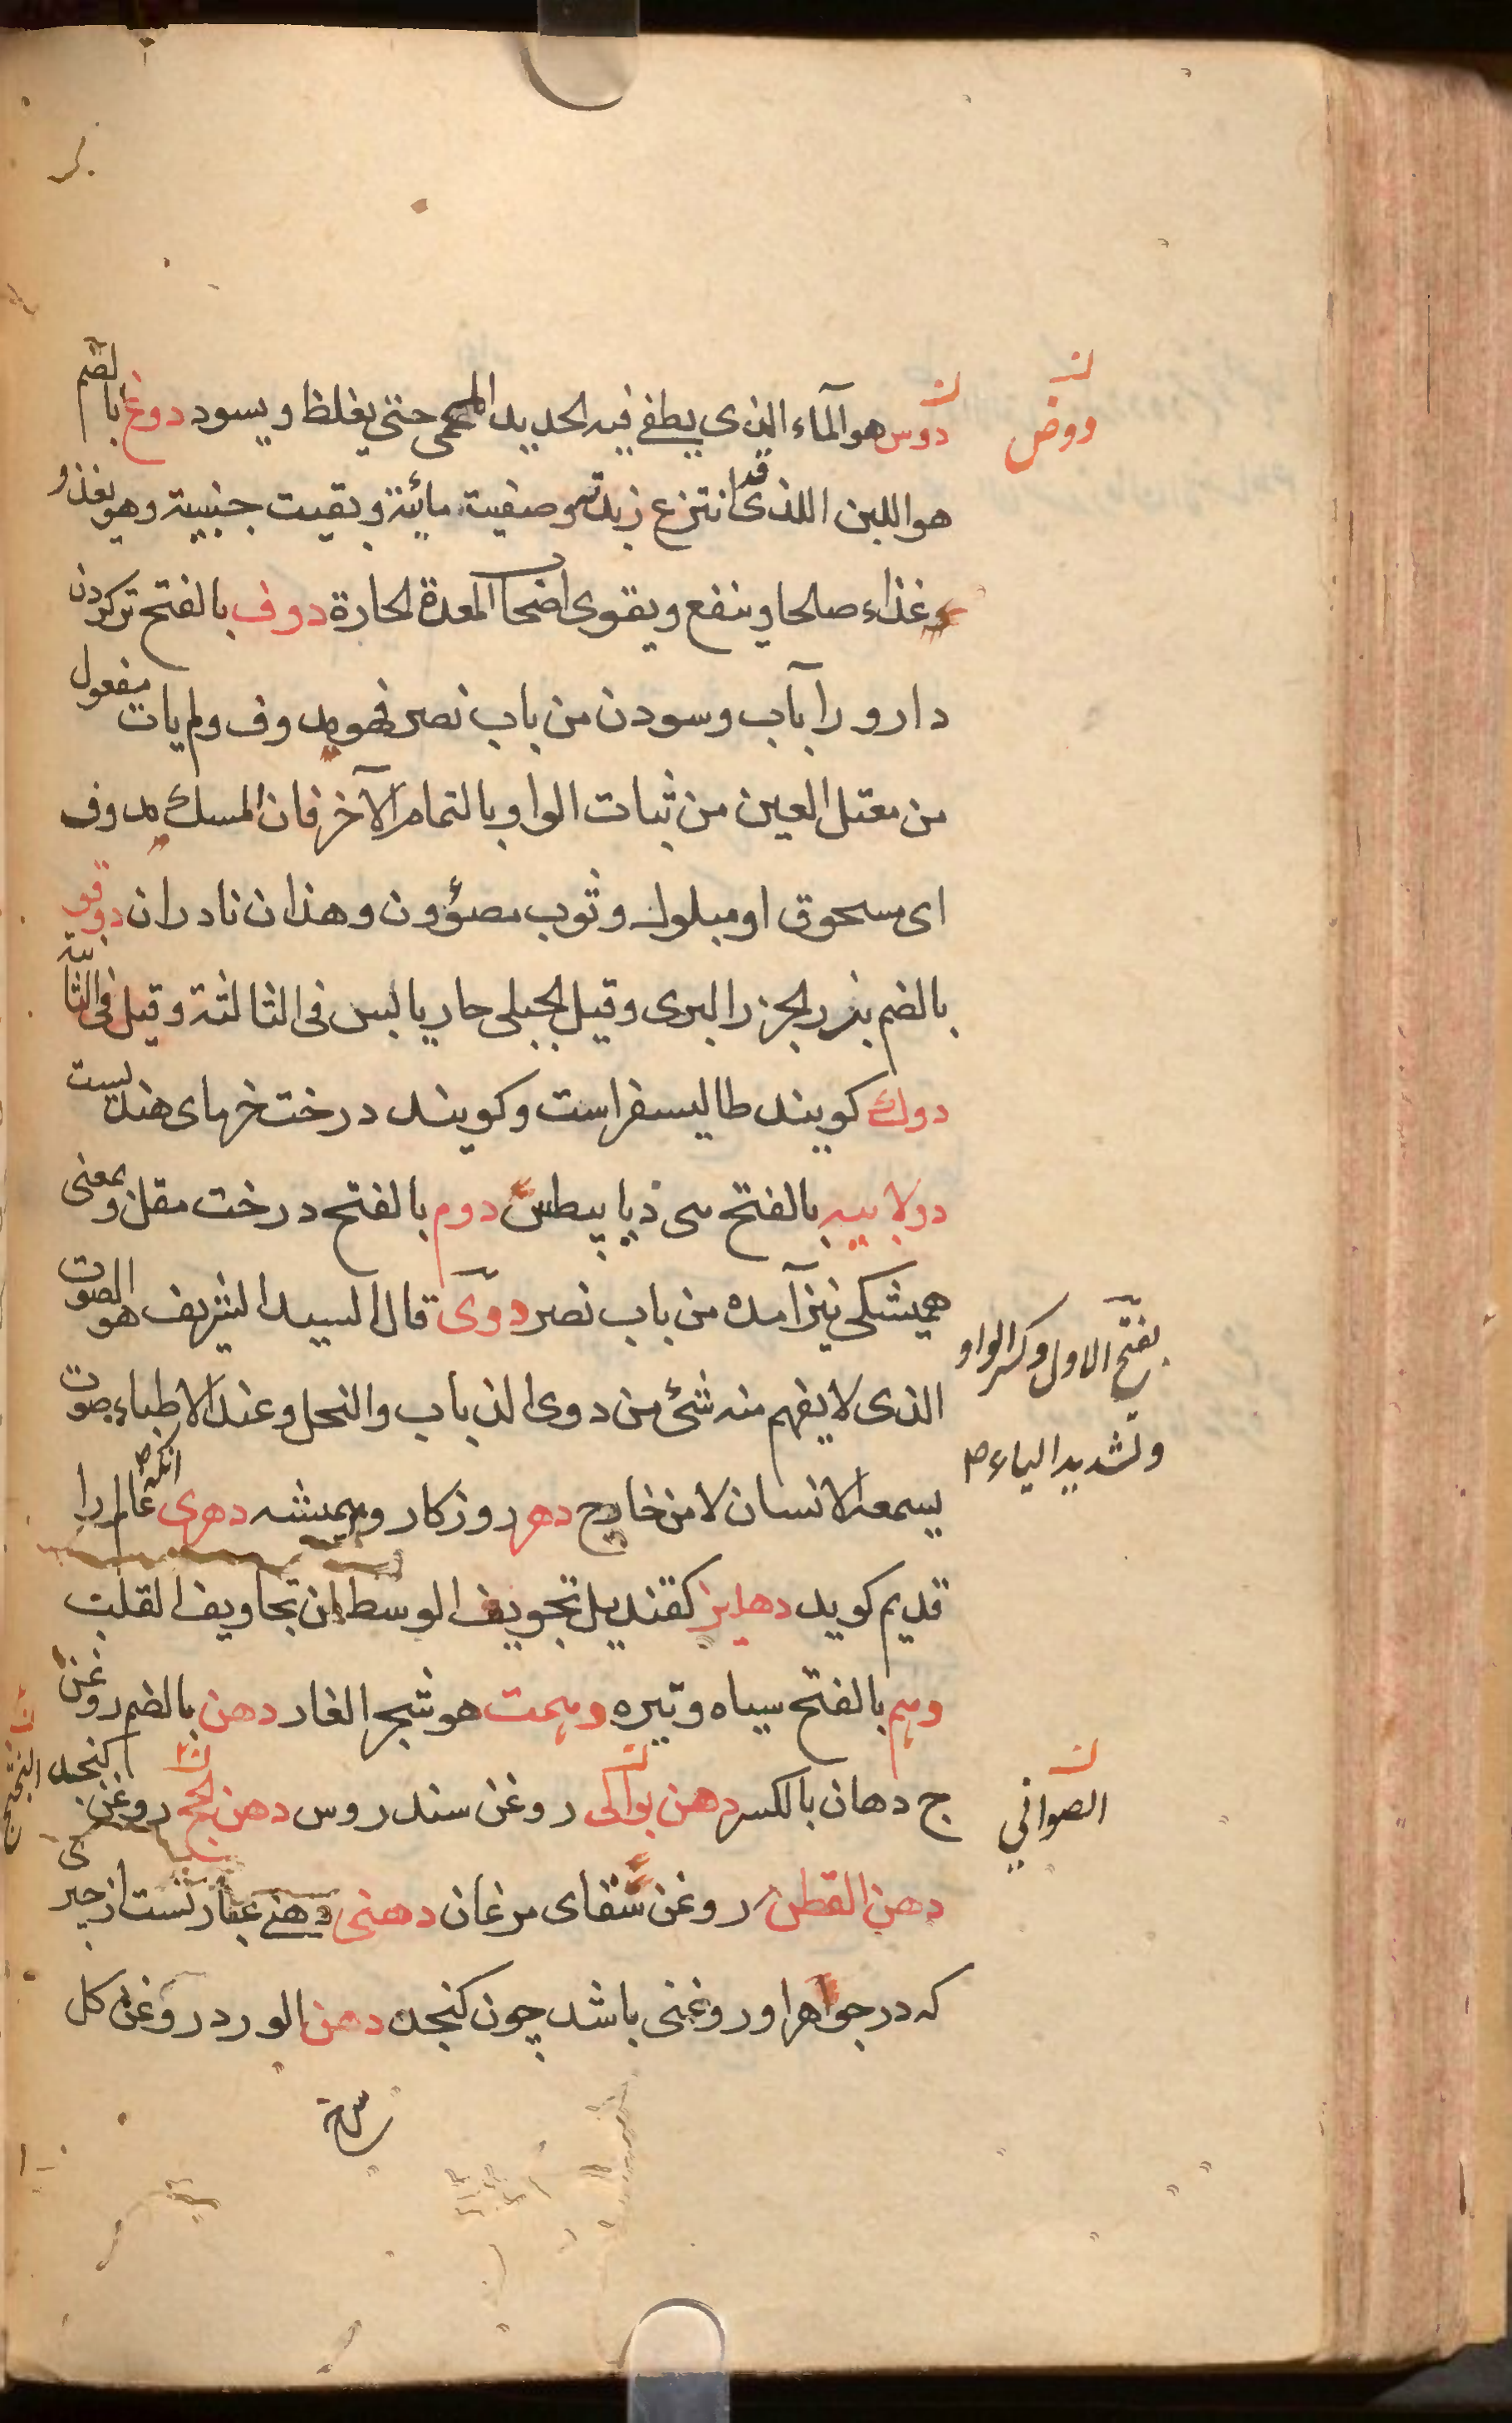 دوس هو الماء الذی یطفی فیه الحدید المحمی حتی یغلظ و یسود دوغ بالضم
هو اللبن اللذی قد انتزع زبدته و صفیت مائیة و بقیت جنبیة و هو یغذو
غذاء صالحا و ینفع و یقوی اضحا المعدة الحارة دوف بالفتح ترکردن
دارو را بآب و سودن من باب نصر فهو مدوف و لم یات مفعول
من معتل العین من ثبات الواو بالتمام الآخر فان المسک مدوف
ای مسحوق او مبلول و ثوب مصؤون و هذان نادران دوقو
بالضم بزر الجزر البری و قیل الجبلی حار یابس فی الثالثة و قیل فی الثانیة
دوک کویند طالیسفر است و کویند درخت خرمای هندیست
دولابیه بالفتح می ذیابیطس دوم بالفتح درخت مقل و بمعنی
همیشکی نیز آمده من باب نصر دوی قال السید الشریف هو الصوت
الذی لا یفهم منه شئ من دوی الذباب و النحل و عند الاطباء صوت
یسمعه الانسان لا من خارج دهر روزکار و همیشه دهری آنکه عالم را
قدیم کوید دهلیز کقندیل تجویف الوسط من تجاویف القلب
دهم بالفتح سیاه و تیره دهمت هو شجر الغار دهن بالضم روغن
ج دهان بالکسر دهن بواکی روغن سندروس دهن الحل روغن کنجد
دهن القطن روغن سقای مرغان دهنی دهنی عبارتست از چیزی
که در جواهر او روغنی باشد چون کنجد دهن الورد روغن کل
دوض
بفتح الاول و کسر الواو
و تشدید الیاء ص
الصوافی